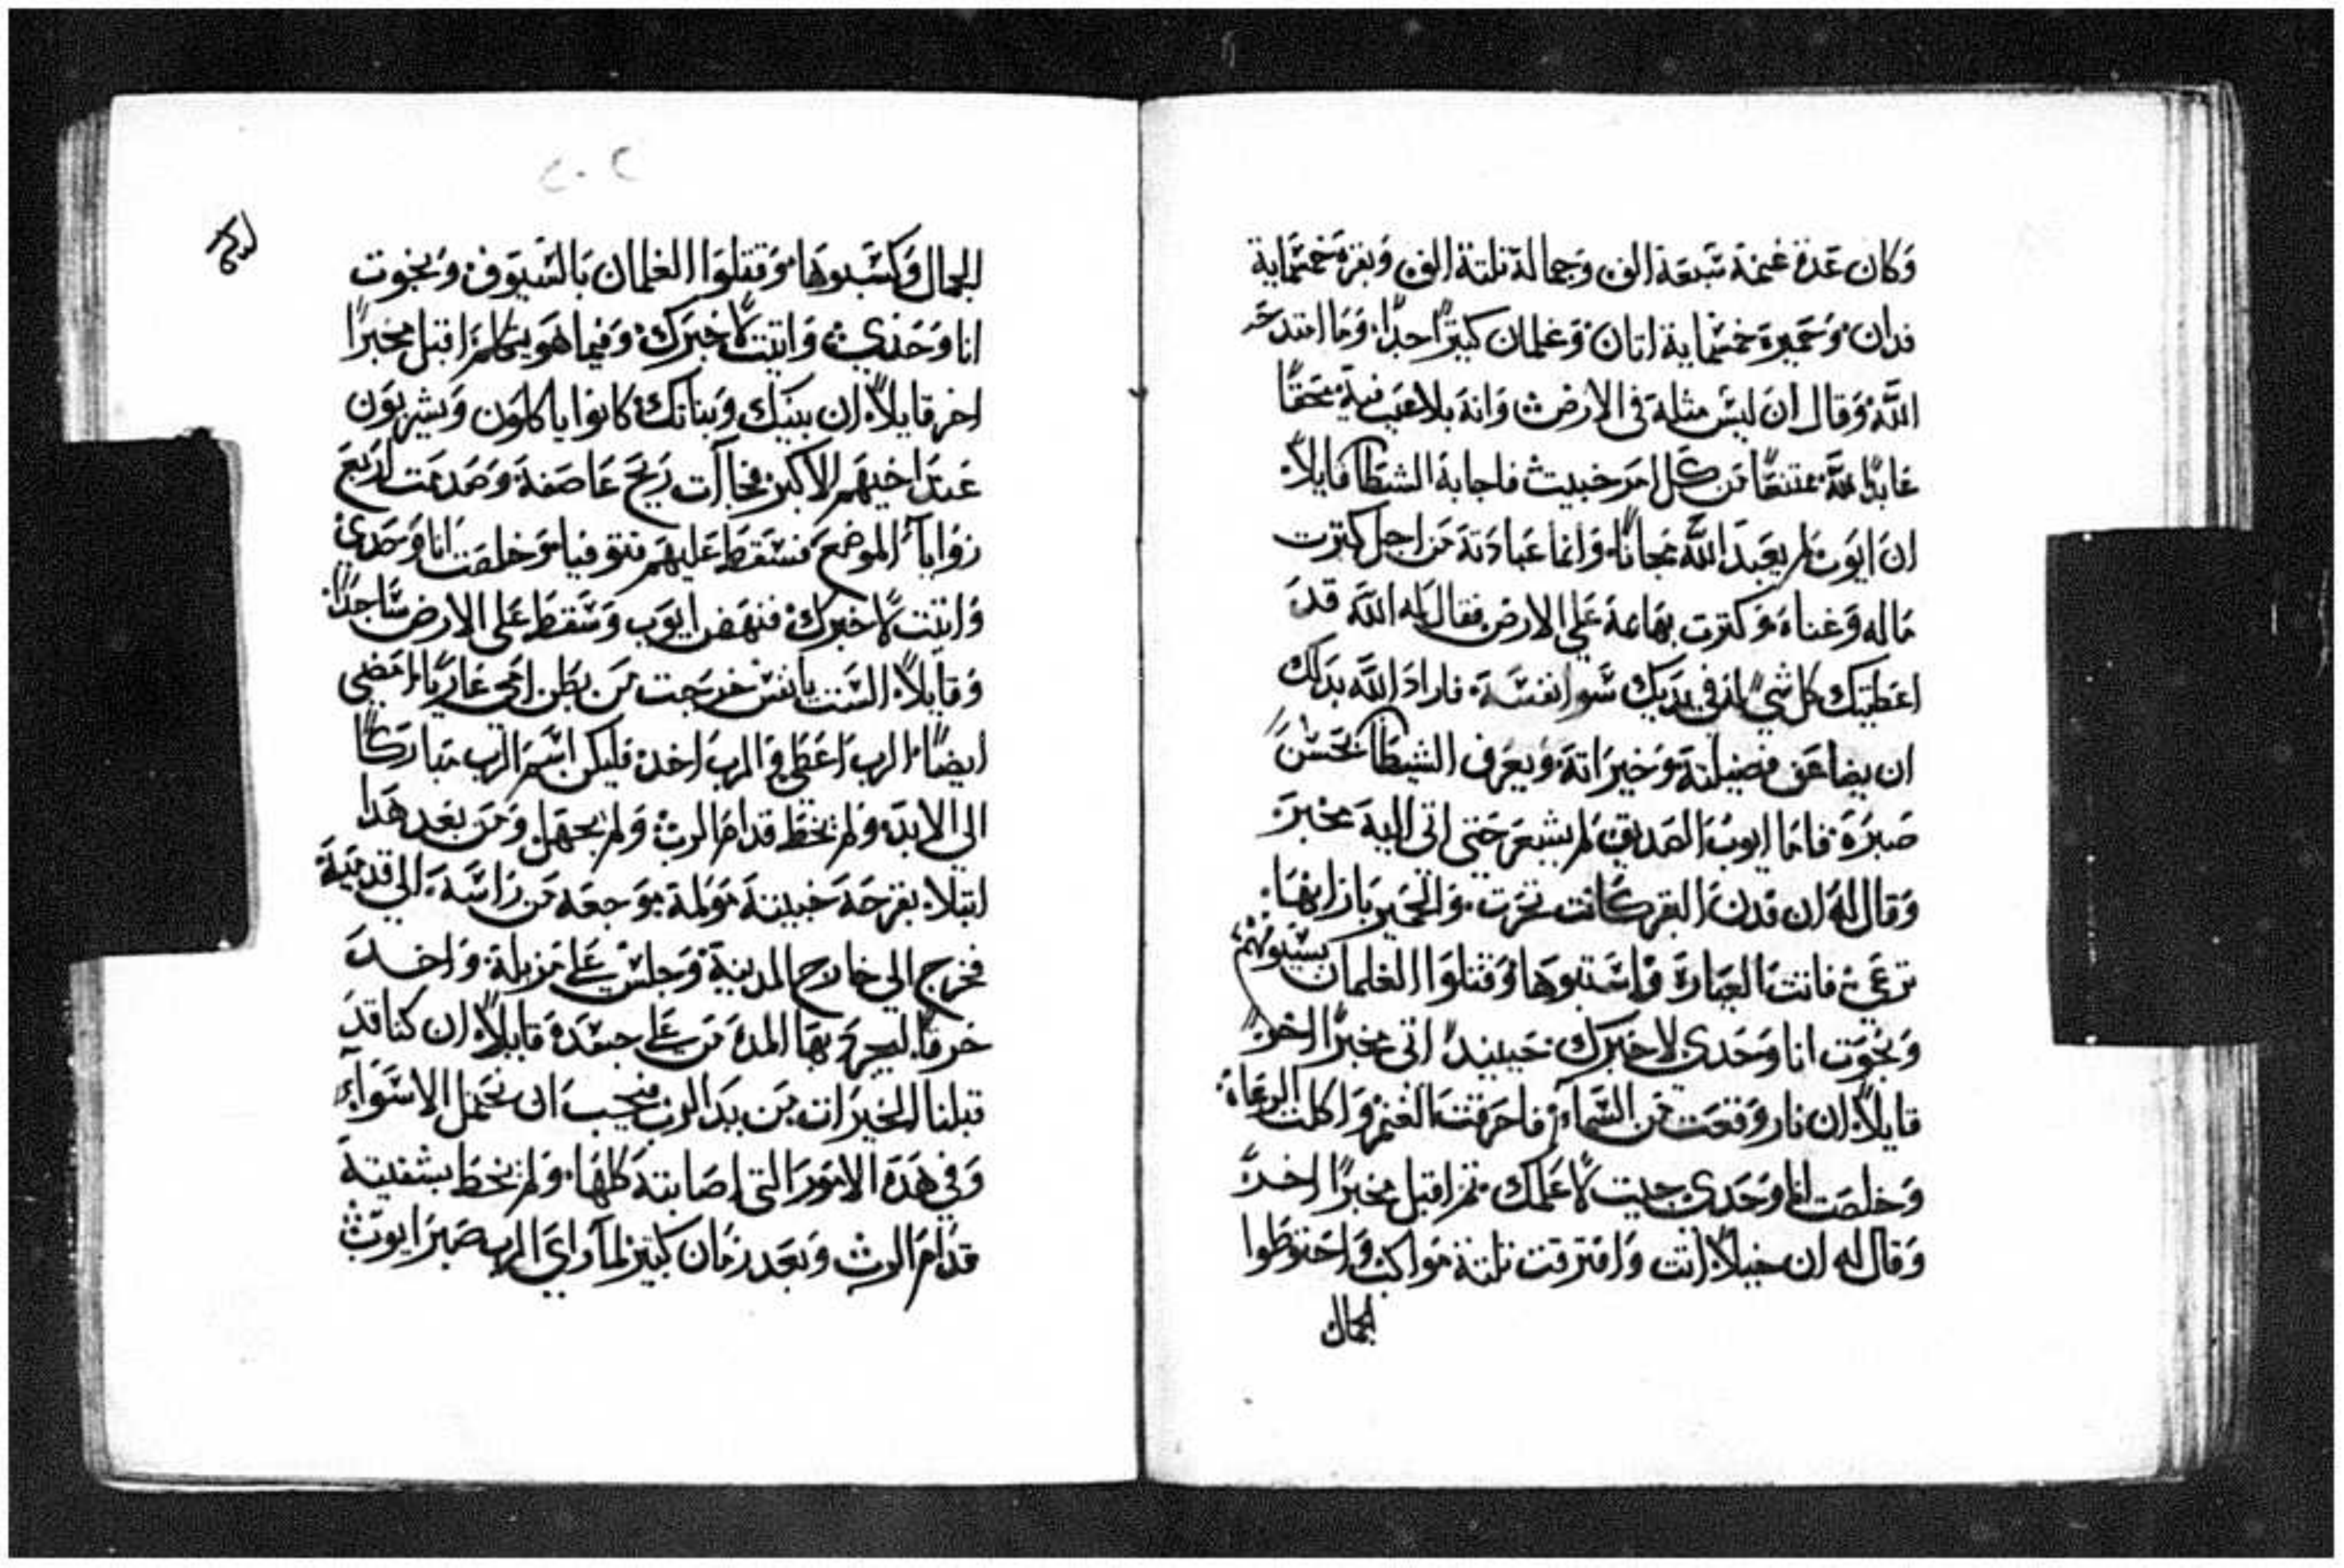 وَكان عَدة غنمة سَبعَة الف وَجمالة تلتة الف وَبقرة خمسَماية
فدان وَحميرة خمسَماية اتان وَغلمان كتيرًا جدًا وَما امتدحَه
اللَّه وَقال ان ليسَ مثلة في الارض وَانه بلا عَيب فية محقًا
عَابدًا للَّه ممتنعًا من كل امر خبيث فاجابة الشيطا قايلاً
ان ايوب لم يعَبد اللَّه مجانًا وَانما عَبادَتة من اجل كترت
مَاله وَغناه وَكترت بهايمة عَلي الارض فقال له اللَّه قدَ
اعَطيتك كل شي له في يديك سَوا نفسَة فارادَ اللَّه بدلك
ان يضاعَف فضيلتة وَخيرَاتة وَيعَرف الشيطا بحَسن
صَبرَة فامَا ايوب الصَديق لم يشعَر حَتي اتي الية مخبرَ
وَقال له ان فدن البقر كانت تحَرت وَالحمير بازايهَا
ترعَي فاتت العَبارة وَاسَتبوهَا وَقتلوَا الغلمان بسَيوفهم
وَنجَوت انا وَحَدي لاخبرك حَينيد اتي مخبرًا اخر
قايلاً ان نار وَقعَت من السَماء فاحَرقت الغنم وَاكلت الرعَاة
وَخلصَت انا وَحَدي جيت لاعَلمك تم اقبل مخبرًا اخر
وَقال له ان خيلاً اتت وَافترقت تلتة مَواكب وَاحَتوَطوا
الجمال
٢٠٢
الجمال وَكسَبوهَا وَقتلوَا الغلمان بَالسَيوَف وَنجوت
انا وَحَدي وَاتيت لاخبرَك وَفيما هَو يتكلم اقبل مخبرًا
اخر قايلاً ان بنيك وَبناتك كانوا ياكلوَن وَيشربوَن
عَندَ اخيهَم الاكبر فجاات ريَح عَاصَفة وَصَدمَت اربعَ
زوَاياء الموضعَ فسَقط عَليهَم فتوفيا وَخلصَت انا وَحَدي
وَاتيت لاخبرك فنهَض ايوَب وَسَقط عَلي الارض سَاجدًا
وَقايلاً السَت يانفسَ خرجت من بطن امي عَاريًا امَضي
ايضًا الرب اعَطي وَالرب اخد فليكن اسَم الرب مَبارَكًا
الي الابد وَلم يخطَ قدام الرب وَلم يجهَل وَمن بعَد هَدا
ابتلاه بقرحَة خبيتة مَولمة موَجعَة من راسَة الي قدمَية
فخرج الي خارج المدينة وَجلسَ عَلي مَزبلة وَاخد
خرقًا ليجرد بهَا المدة من عَلي جسَدة قايلاً ان كنا قدَ
قبلنا الخيرَات من يد الرب فيجب ان نحَتمل الاسَوَاء
وَفي هَدة الامَورَ التي اصَابتة كلهَا وَلم يخط بشفتية
قدام الرب وَبعَد زمَان كتير لما رايَ الرب صَبرَ ايوَب